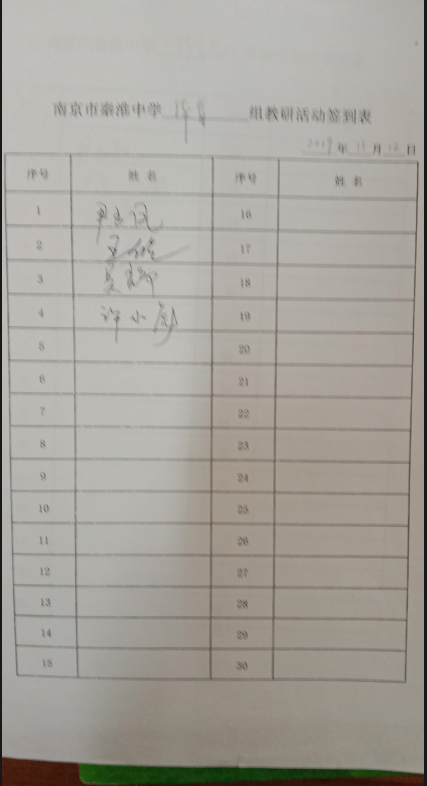 南京市秦淮中学体育组教研活动签到表
2019年11月12日
序号 姓名 序号 姓名
1 16
2 17
3 18
4 许小 19
5 20
6 21
7 22
8 23
9 24
10 25
11 26
12 27
13 28
14 29
15 30